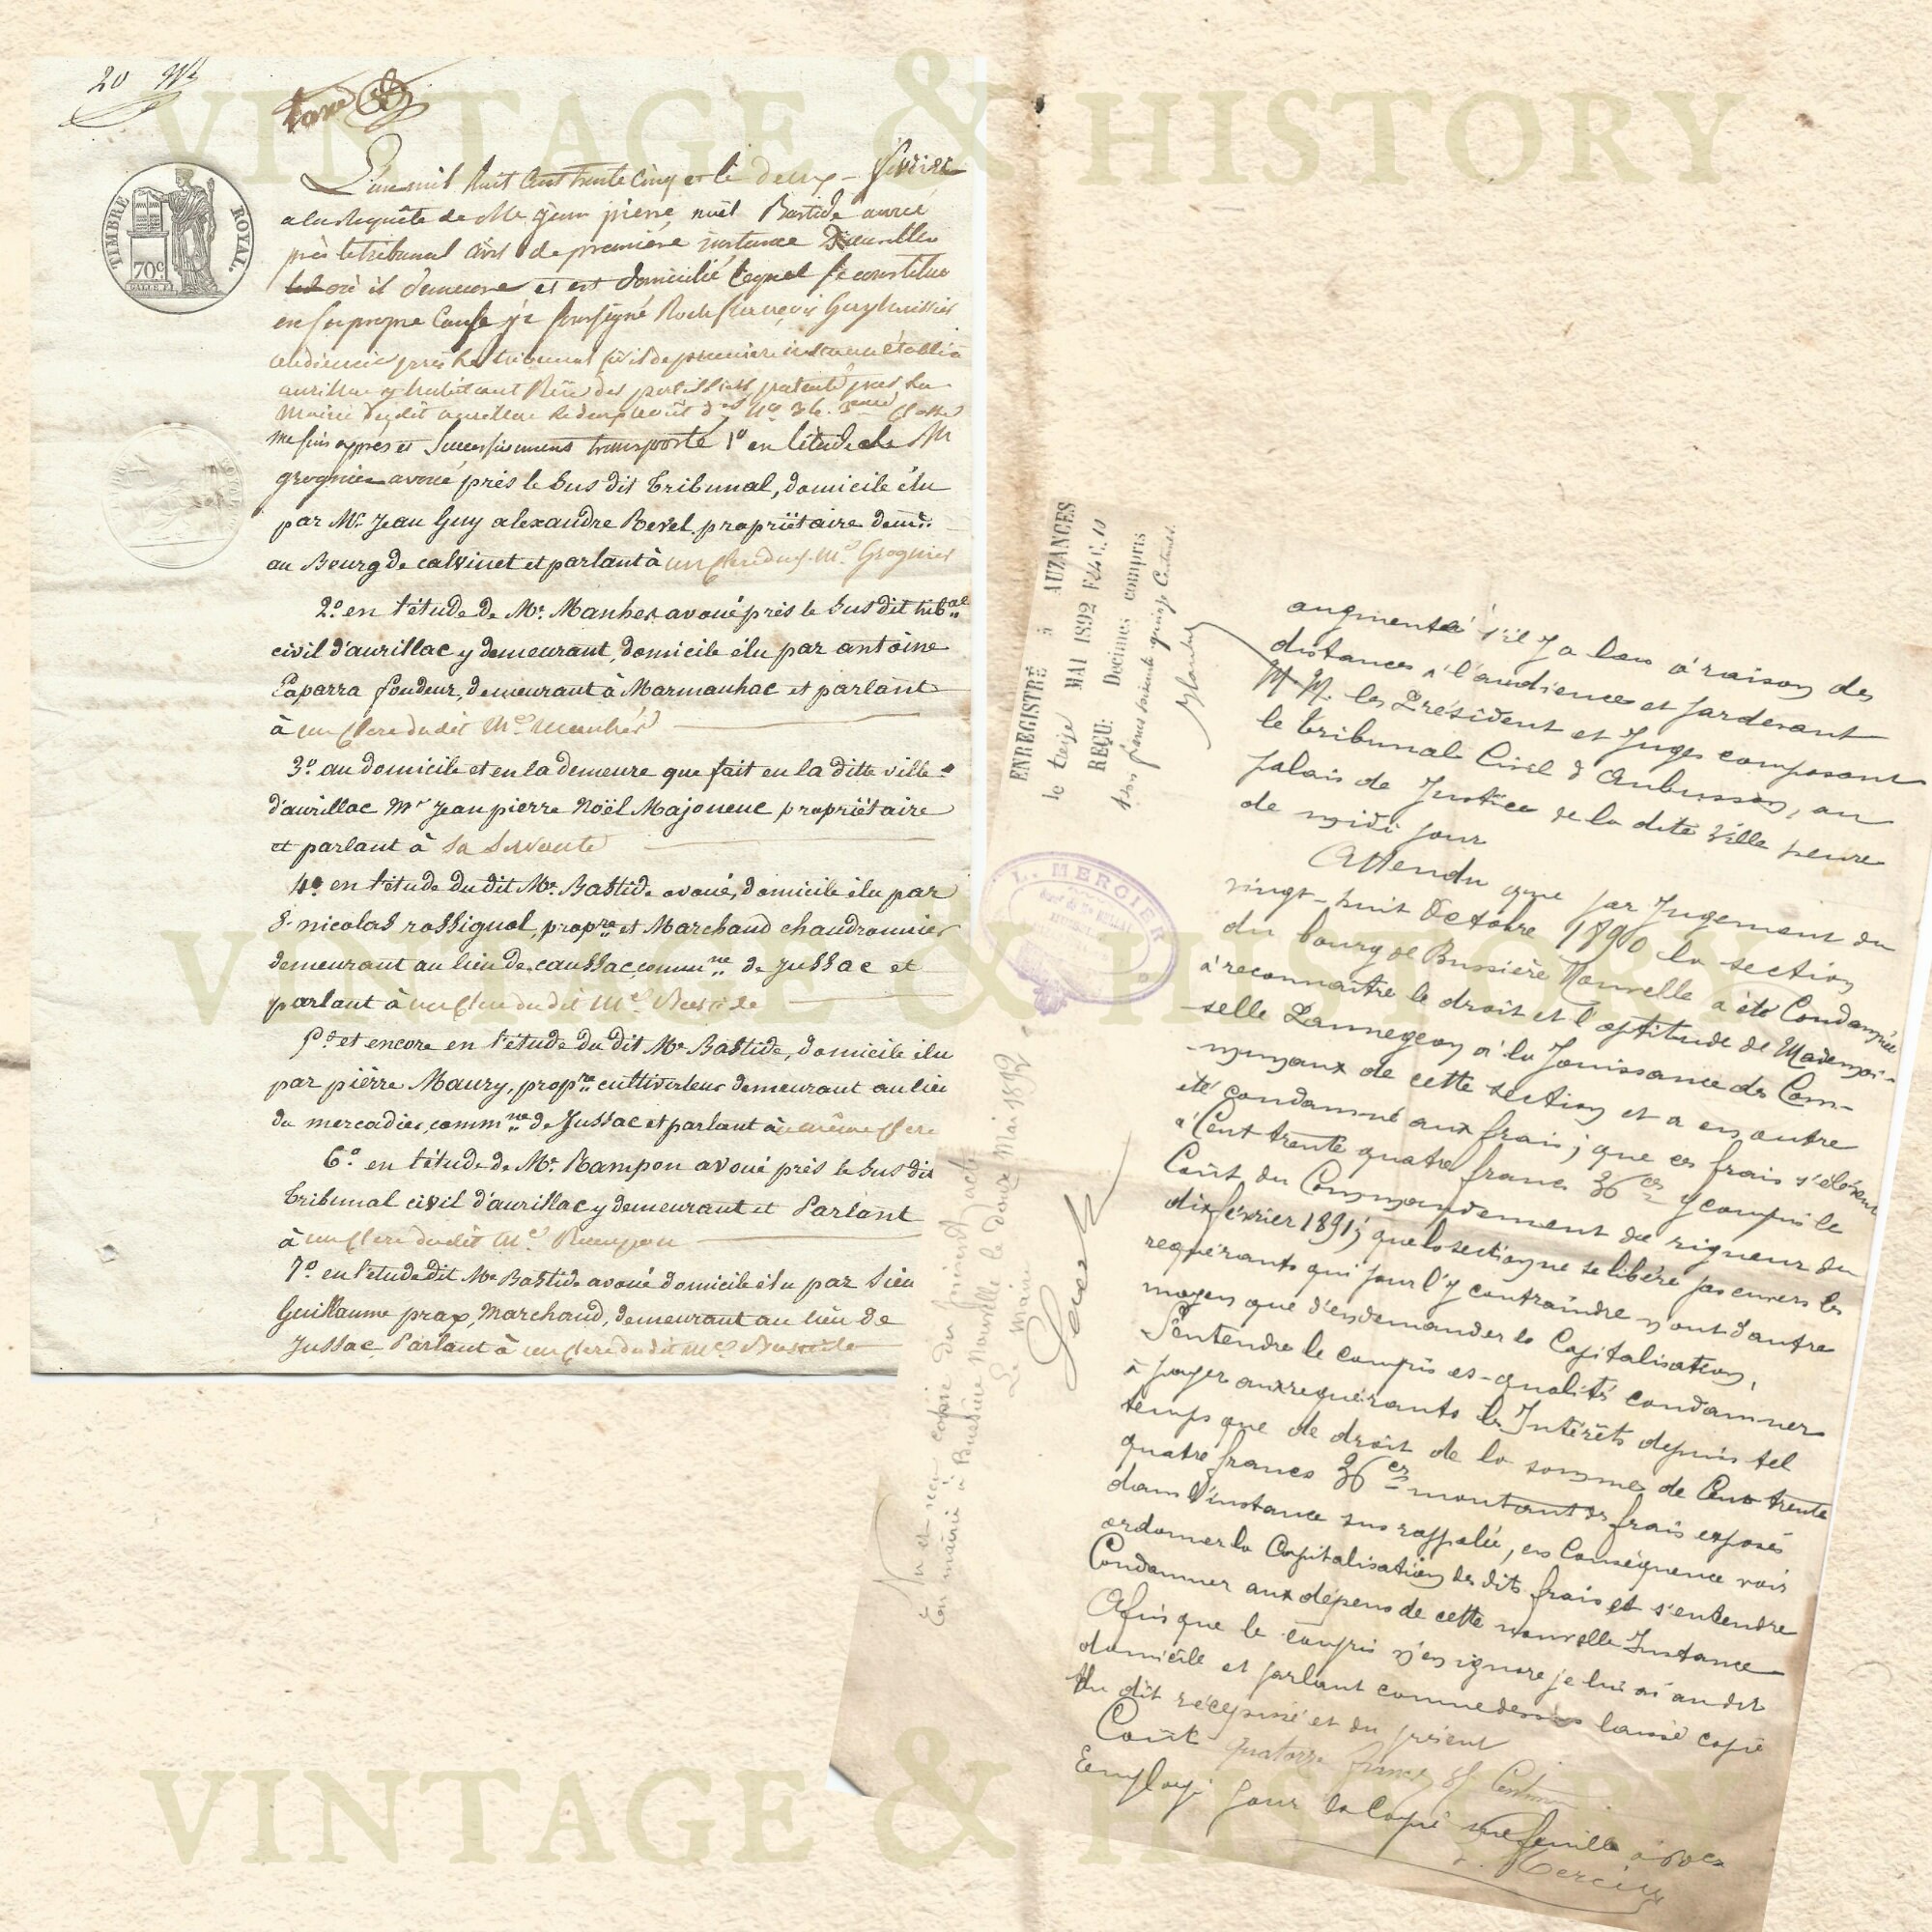 VINTAGE & HISTORY
20
taxé
TIMBRE ROYAL.
70c
L'an mil huit cent trente cinq et le deux février
a la requête de Me jean pierre noël Bastide avoué
près le tribunal civil de première instance d'aurillac
où il demeure et est domicilié lequel se constitue
en sa propre cause je soussigné Roch françois Guy huissier
audiencier près le tribunal civil de première instance établi à
aurillac y habitant Rue des patenté par la
Mairie dudit aurillac le deux août dr No 36. 3eme Classe
me suis exprès et successivement transporté 1o en l'étude de Me
grognier avoué près le sus dit tribunal, domicile élu
par Mr. Jean Guy alexandre Revel, propriétaire demt.
au Bourg de calvinet et parlant à un clerc dudit Me. Grognier
2o. en l'étude de Me. Manhes avoué près le sus dit tribal
civil d'aurillac y demeurant, domicile élu par antoine
Laparra fondeur, demeurant à Marmanhac et parlant
à un clerc dudit Me. Manhes
3o. au domicile et en la demeure que fait en la ditte ville
d'aurillac Mr Jean pierre Noël Majoneuc propriétaire
et parlant à sa servante
4o en l'étude du dit Me. Bastide avoué, domicile élu par
Sr nicolas rossignol, propre et Marchand chaudronnier
demeurant au lieu de caussac, commne de Jussac et
parlant à un clerc du dit Me Bastide
5o et encore en l'étude du dit Me Bastide, domicile élu
par pierre Maury, propre cultivateur demeurant au lieu
du mercadier, commne de Jussac et parlant à u même clerc
6o. en l'étude de Me. Rampon avoué près le sus dit
tribunal civil d'aurillac y demeurant et Parlant
à un clerc du dit Me. Rampon
7o. en l'étude dit Me Bastide avoué domicile élu par Sieu
Guillaume prax, Marchand, demeurant au lieu de
Jussac Parlant à un clerc du dit Me Bastide
ENREGISTRÉ à AUZANCES
le treize MAI 1892 F 44 C. 10
REÇU: Décimes compris
francs soixante quinze Centimes.
L. MERCIER
Vu et reçu copie du présent acte
En mairie à Bussière Nouvelle le douze Mai 1892
Le Maire
augmenté s'il y a lieu à raison des
distances à l'audience et pardevant
M.M. les Président et Juges composant
le tribunal Civil d'Aubusson, au
palais de Justice de la dite ville heure
de midi pour
Attendu que par Jugement du
vingt-huit Octobre 1890 la section
du bourg de Bussière Nouvelle a été Condamnée
à reconnaître le droit et l'aptitude de Mademoi-
-selle Lannegeon à la Jouissance des Com-
-munaux de cette section et a en outre
été condamné aux frais ; que ces frais s'élèvent
à Cent trente quatre francs 36 ces y compris le
Coût du Commandement de rigueur du
dix février 1891; que la section ne se libère pas envers les
requérants qui pour l'y contraindre n'ont d'autre
moyen que d'en demander la Capitalisation,
S'entendre le compris es-qualités condamner
à payer aux requérants les Intérêts depuis tel
temps que de droit de la somme de Cent trente
quatre francs 36 ces montant des frais exposés
dans l'instance sus rappelée, en Conséquence voir
ordonner la Capitalisation des dits frais et s'entendre
Condamner aux dépens de cette nouvelle Instance
Afin que le compris n'en ignore je lui ai au dit
domicile et parlant comme dessus laissé copie
du dit récépissé et du présent
Coût quatorze francs Centimes
Employé pour la Copie une feuille à 60 ces
L. Mercier
VINTAGE & HISTORY
VINTAGE & HISTORY